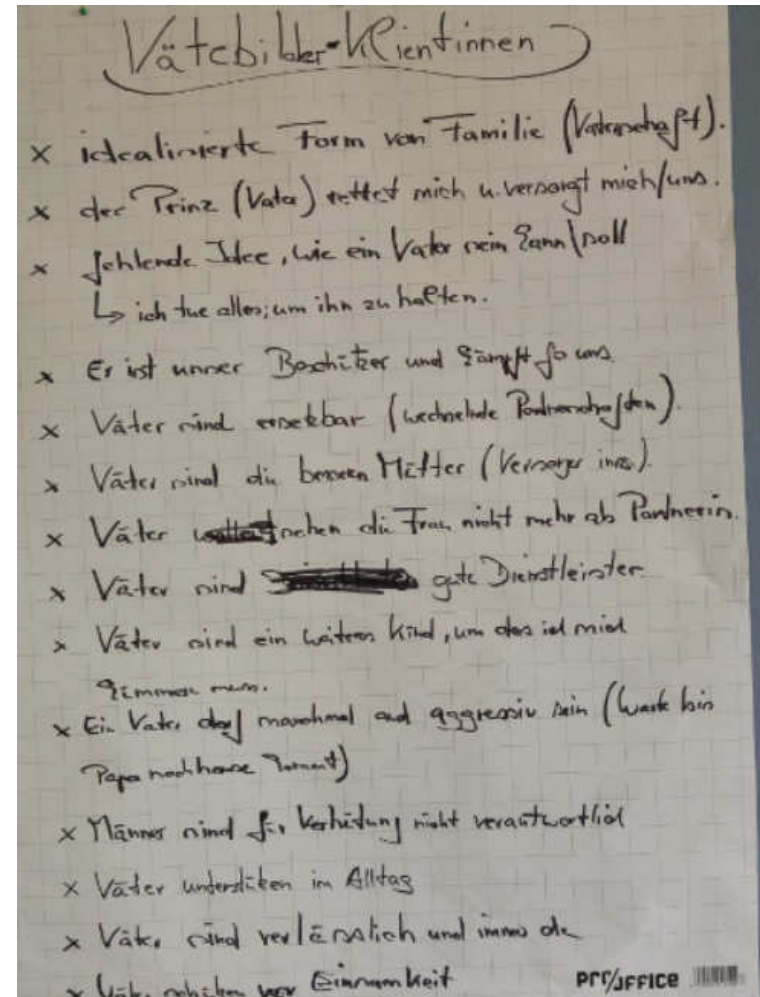 Vätebilder-Klientinnen
x idealisierte Form von Familie (Vaterschaft).
x der Prinz (Vater) rettet mich u. versorgt mich/uns.
x fehlende Idee, wie ein Vater sein kann/soll
↳ ich tue alles, um ihn zu halten.
x Er ist unser Beschützer und kämpft für uns.
x Väter sind ersetzbar (wechselnde Partnerschaften).
x Väter sind die besseren Mütter (Versorger
x Väter sehen die Frau nicht mehr als Partnerin.
x Väter sind gute Dienstleister
x Väter sind ein weiteres Kind, um das ich mich
kümmern muss.
x Ein Vater darf manchmal auch aggressiv sein (Warte bis
Papa nach hause kommt)
x Männer sind für Verhütung nicht verantwortlich
x Väter unterstützen im Alltag
x Väter sind verlässlich und immer da
x Väter schützen vor Einsamkeit
prr/office